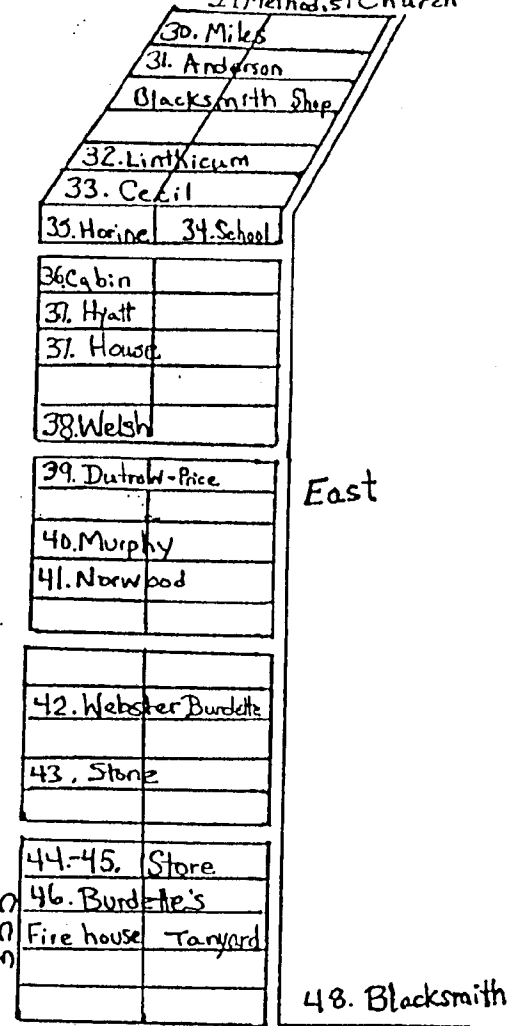 Methodist Church
30. Miles
31. Anderson
Blacksmith Shop
32. Linthicum
33. Cecil
35. Horine 34. School
36. Cabin
37. Hyatt
37. House
38. Welsh
39. Dutrow-Price
East
40. Murphy
41. Norwood
42. Webster Burdette
43. Stone
44.-45. Store
46. Burdette's
Fire house Tanyard
48. Blacksmith